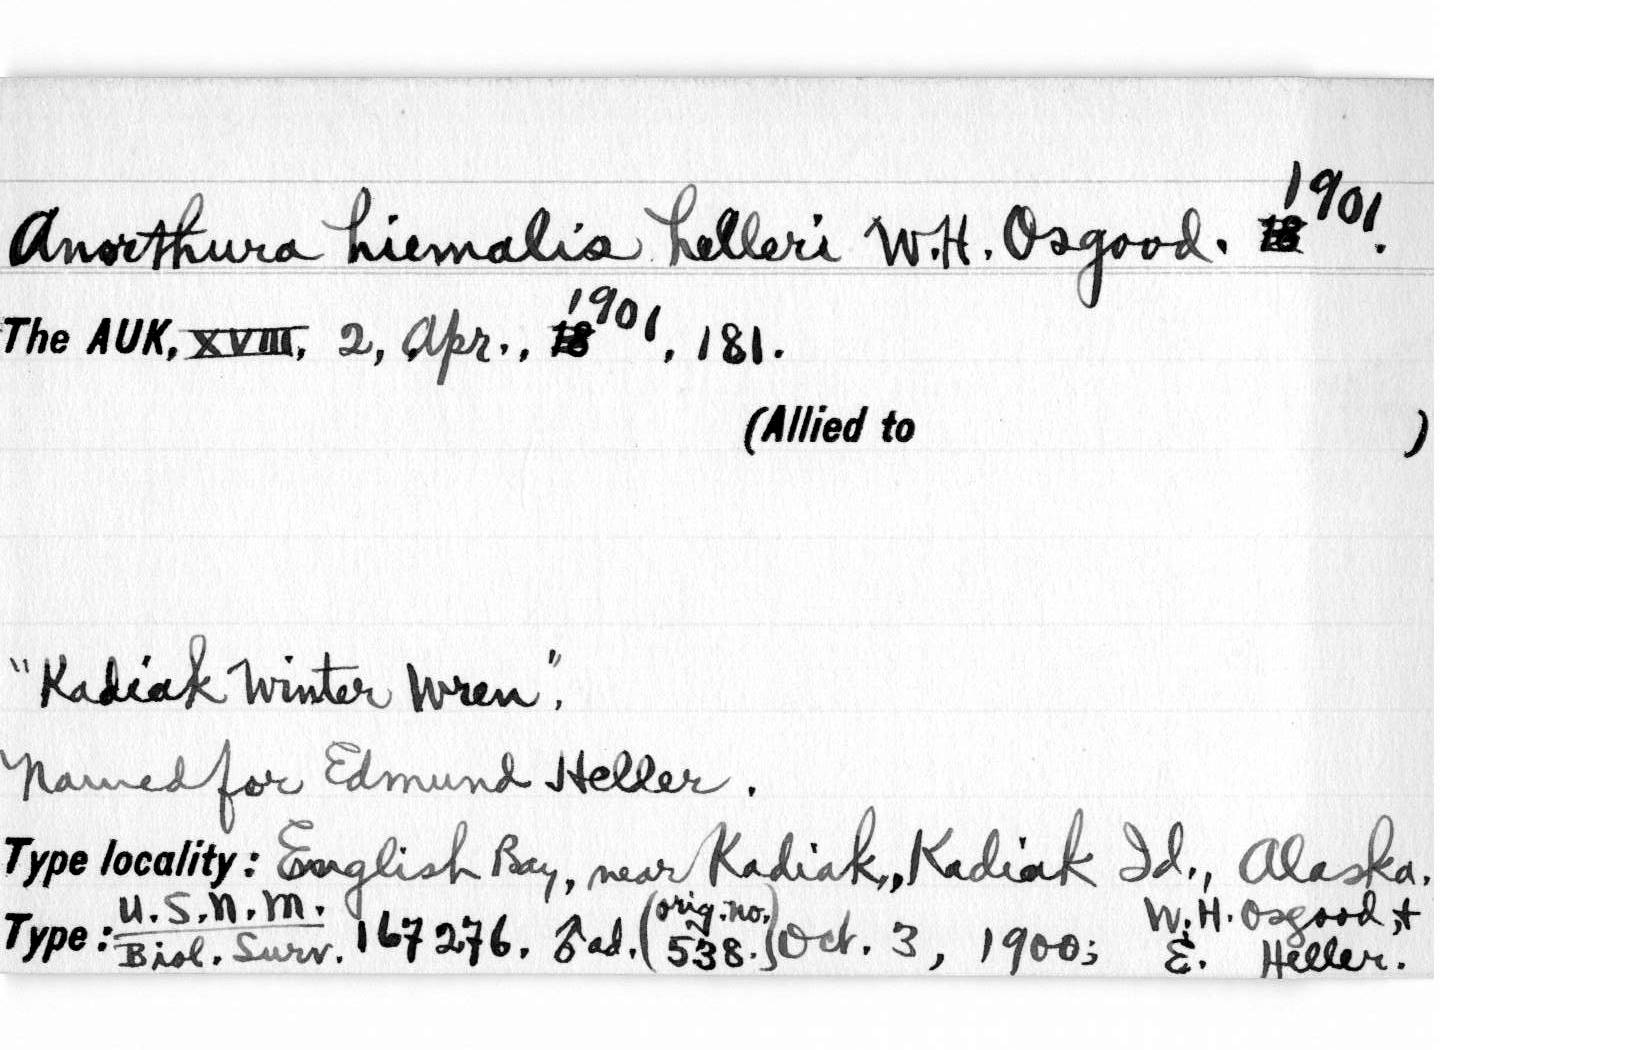 Anorthura hiemalis helleri W.H. Osgood. 1901.
The AUK, XVIII, 2, Apr., 1901, 181.
(Allied to )
"Kadiak Winter Wren".
Named for Edmund Heller.
Type locality: English Bay, near Kadiak, Kadiak Id., Alaska.
Type: U.S.N.M. Biol. Surv. 167276. ♂ ad. (orig. no. 538.) Oct. 3, 1900; W.H. Osgood & E. Heller.